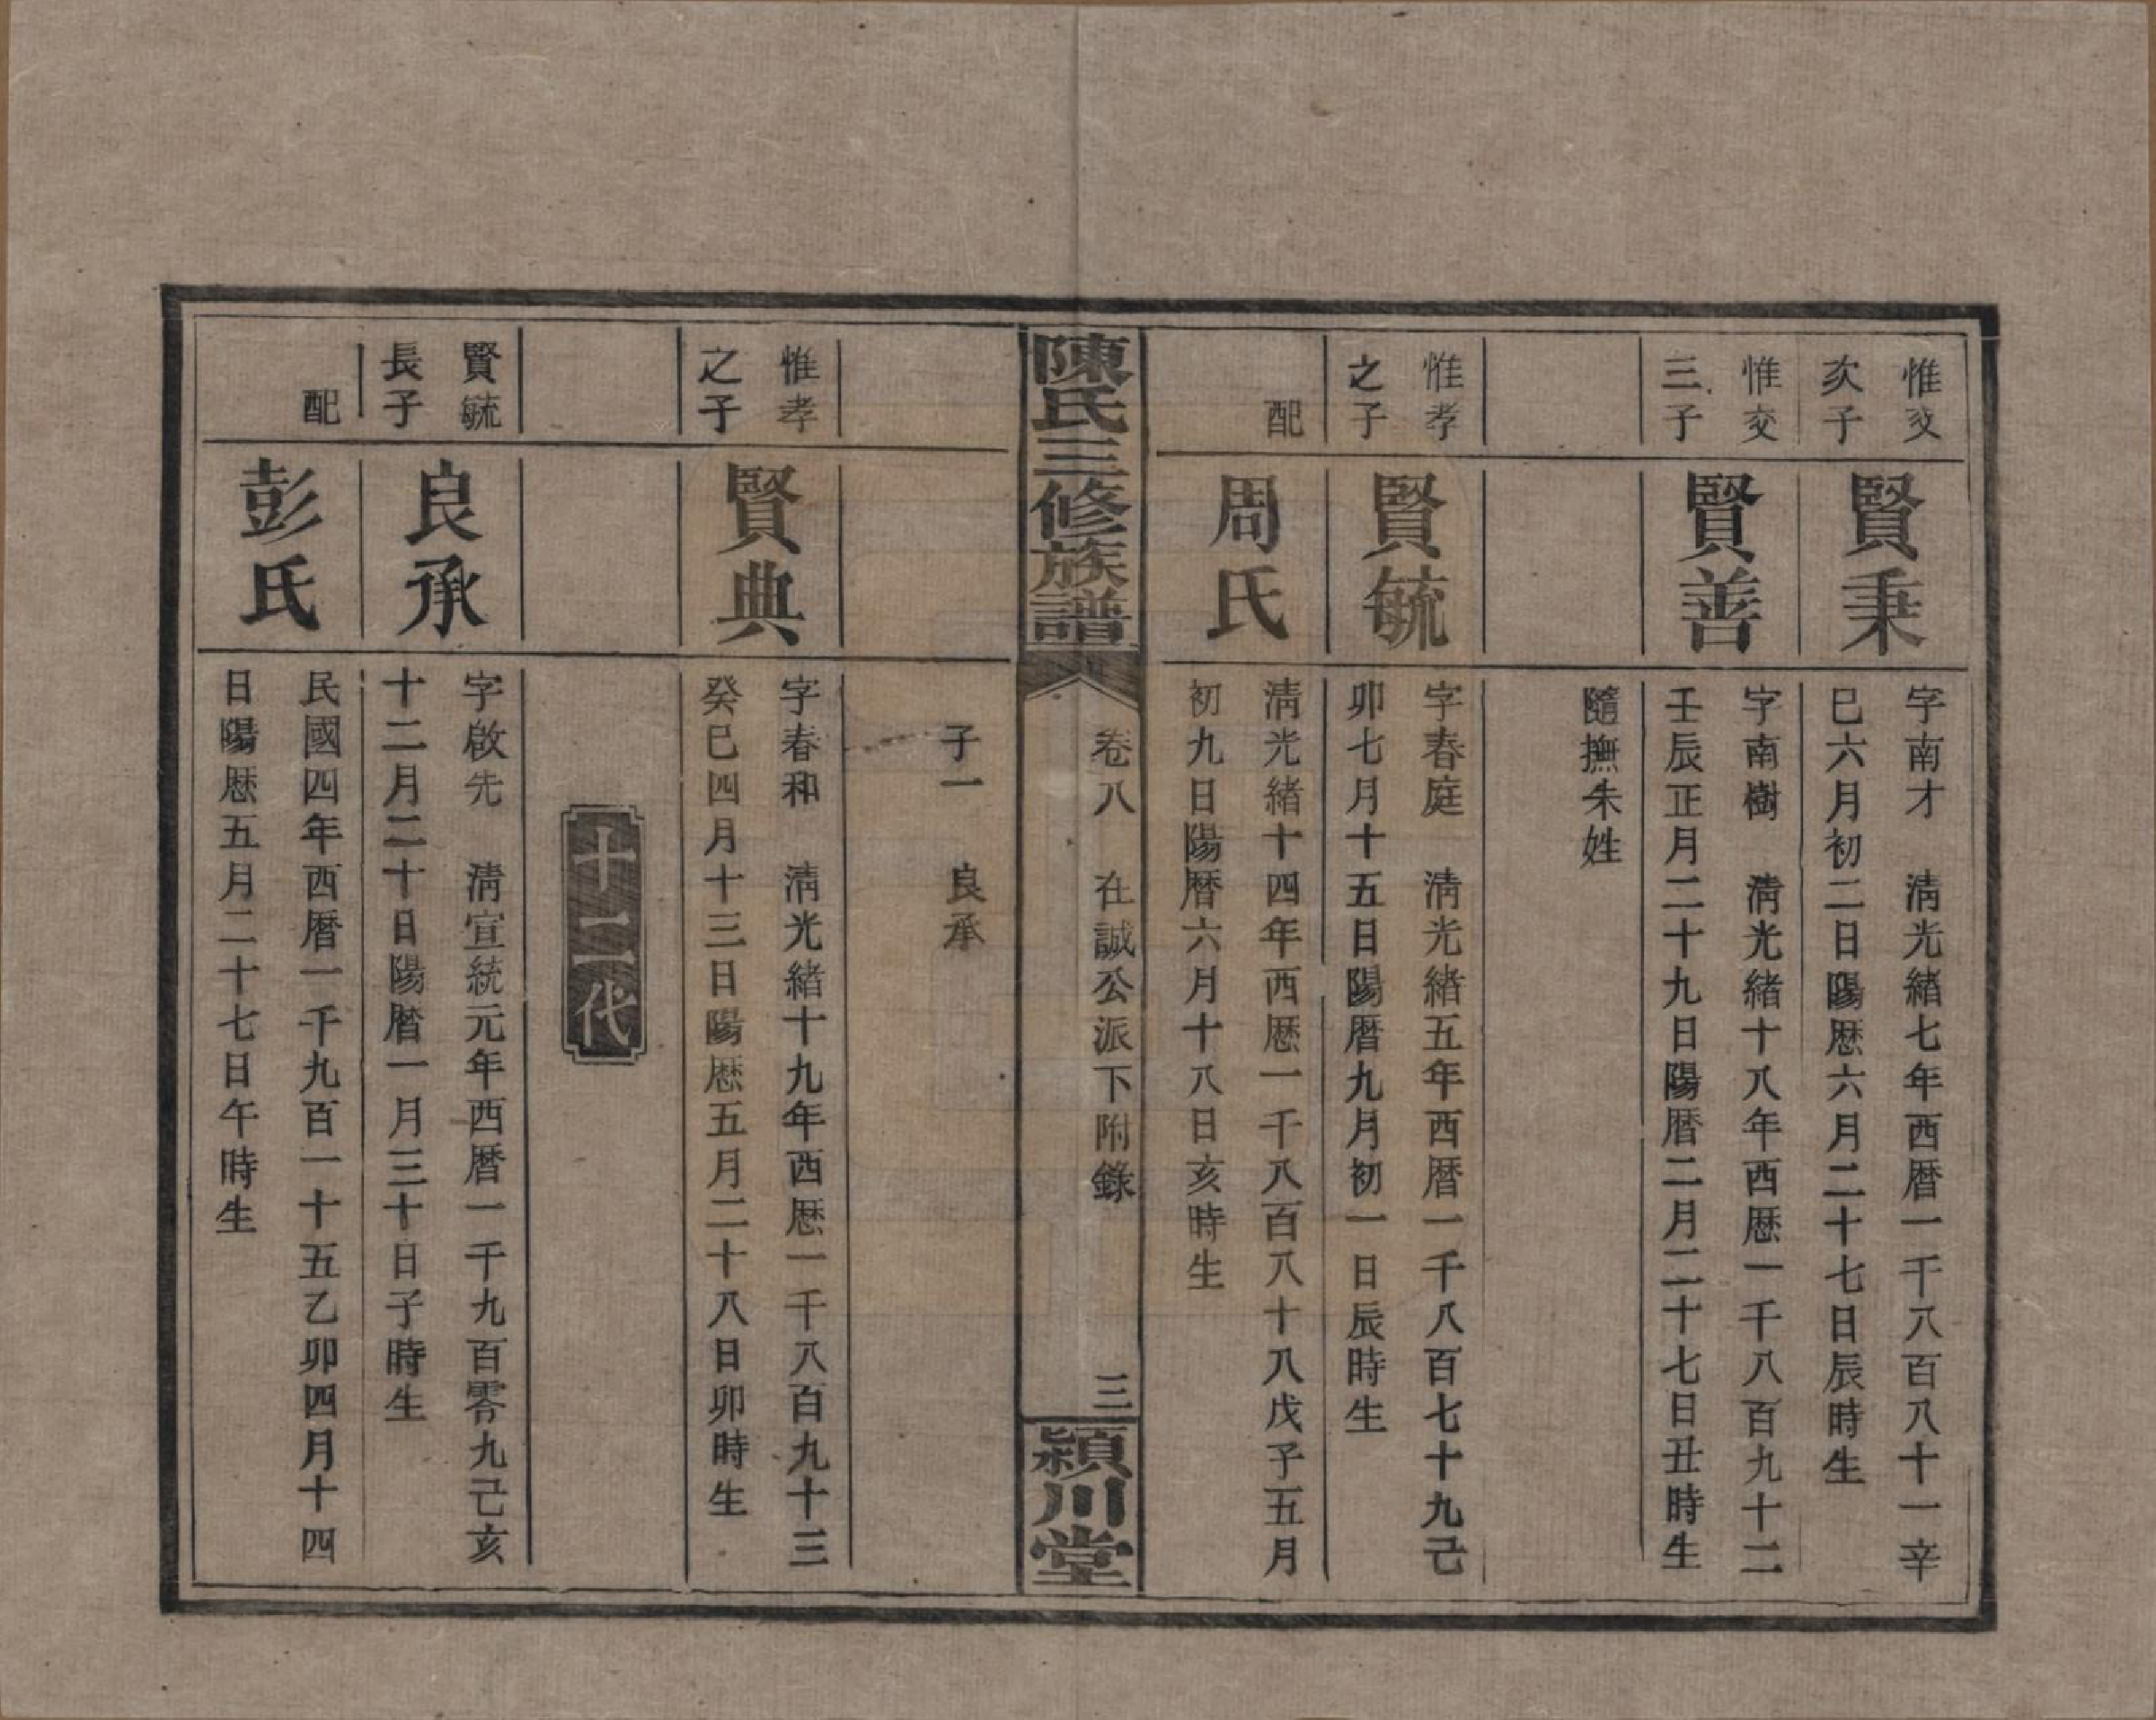 惟交
次子
賢秉
字南才　清光緒七年西曆一千八百八十一辛
巳六月初二日陽歷六月二十七日辰時生
惟交
三子
賢善
字南樹　清光緒十八年西歷一千八百九十二
壬辰正月二十九日陽曆二月二十七日丑時生
隨撫朱姓
惟孝
之子
賢毓
字春庭　清光緒五年西曆一千八百七十九己
卯七月十五日陽曆九月初一日辰時生
配
周氏
清光緒十四年西歷一千八百八十八戊子五月
初九日陽曆六月十八日亥時生
陳氏三修族譜
卷八　在誠公派下附錄
三
潁川堂
子一　良承
惟孝
之子
賢典
字春和　清光緒十九年西歷一千八百九十三
癸巳四月十三日陽歷五月二十八日卯時生
十二代
賢毓
長子
良承
字啟先　清宣統元年西曆一千九百零九己亥
十二月二十日陽曆一月三十日子時生
配
彭氏
民國四年西曆一千九百一十五乙卯四月十四
日陽歷五月二十七日午時生